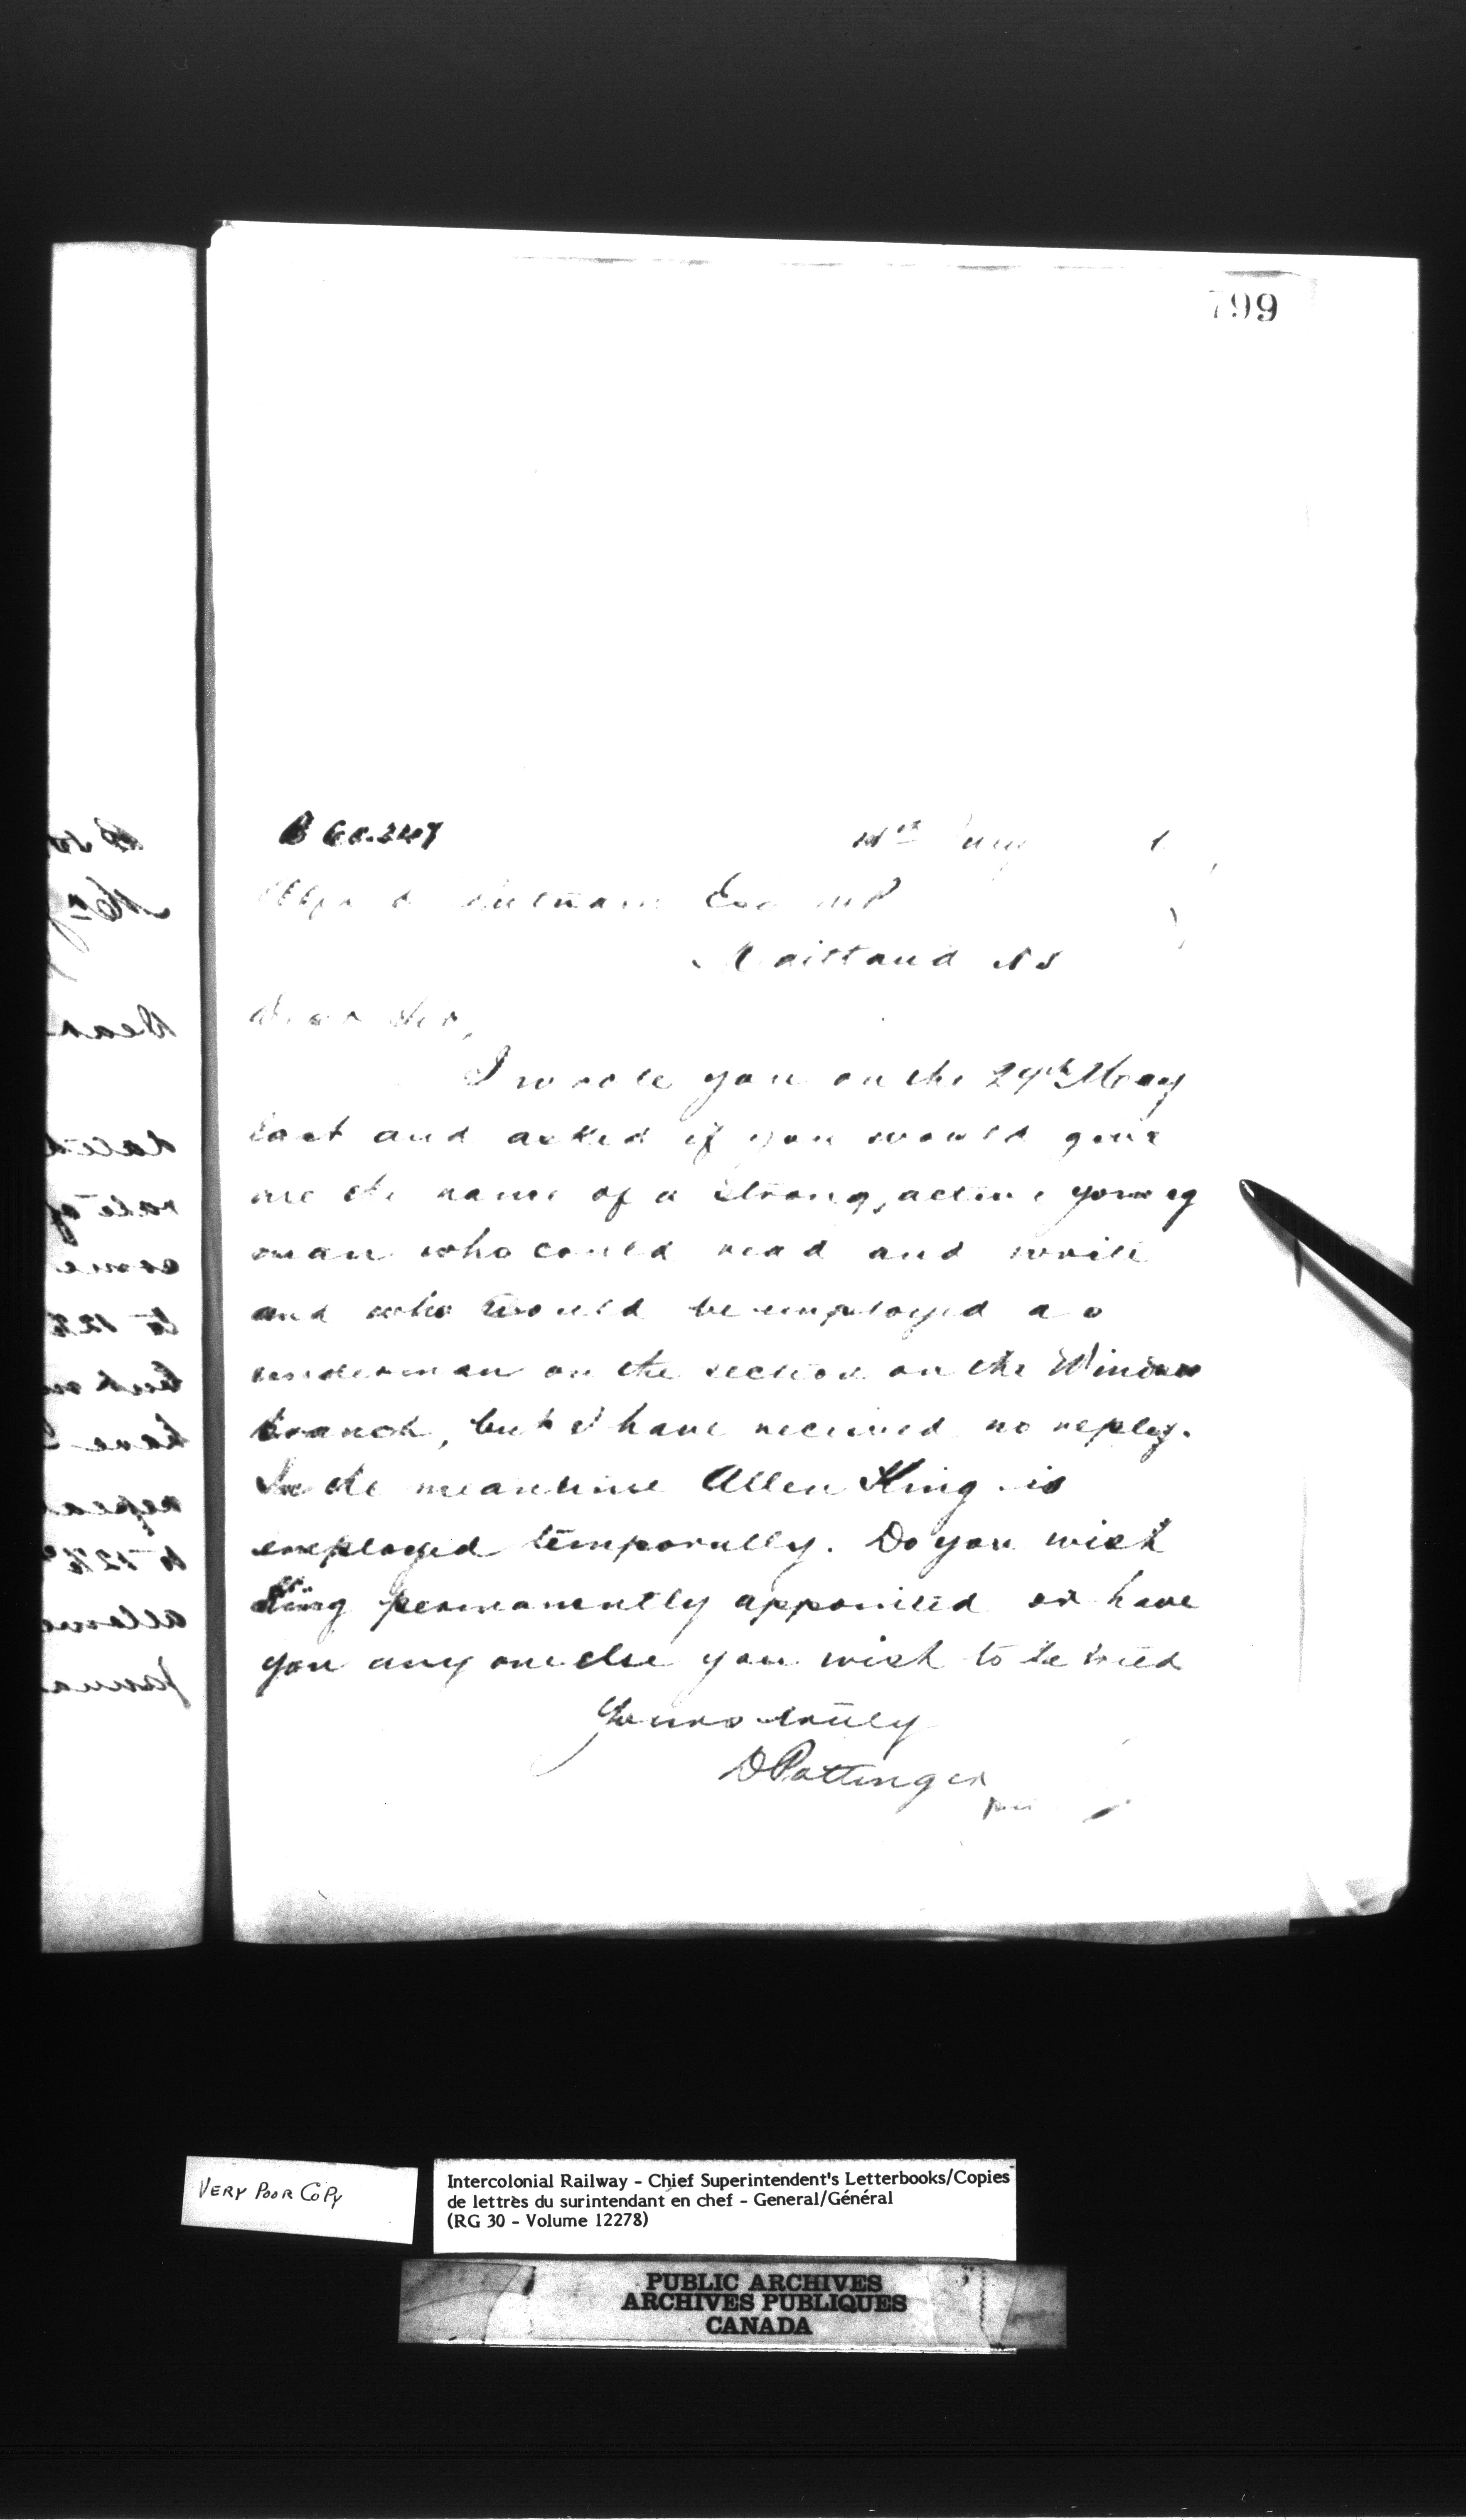 799
Esq MP
Maitland NS
Dear Sir,
I wrote you on the 29th May
last and asked if you would give
me the name of a strong, active young
man who could read and write
and who would be employed as
underman on the section on the Windsor
branch, but I have received no reply.
In the meantime Allen King is
employed temporally. Do you wish
King permanently appointed or have
you any one else you wish to be tried
Yours truly
D Pottinger
per
VERY POOR COPY
Intercolonial Railway - Chief Superintendent's Letterbooks/Copies
de lettres du surintendant en chef - General/Général
(RG 30 - Volume 12278)
PUBLIC ARCHIVES
ARCHIVES PUBLIQUES
CANADA